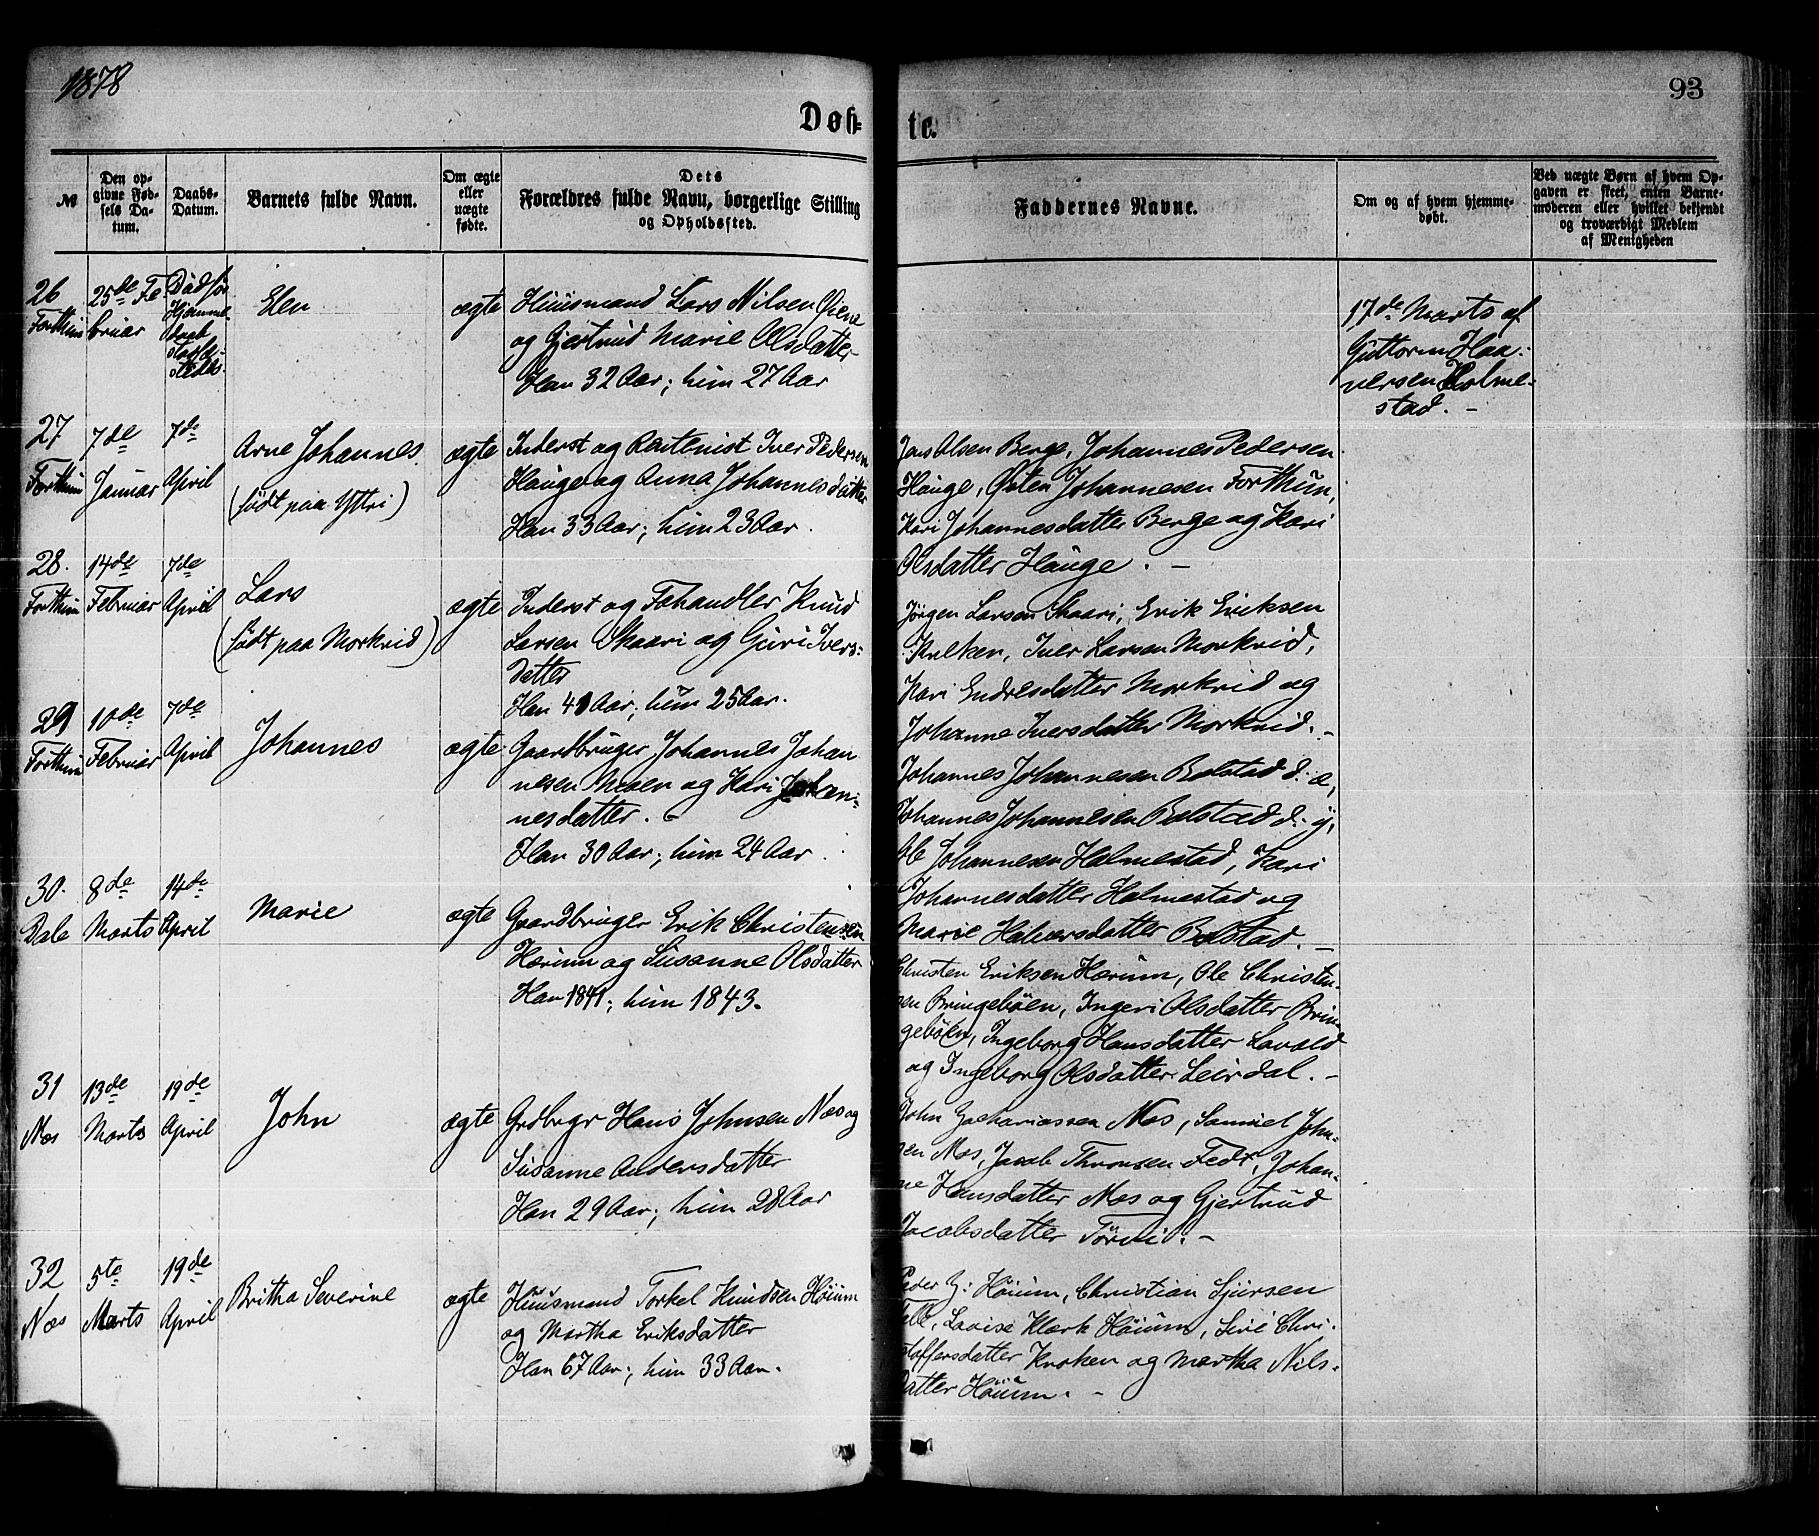 1878
93
Døb-
te.
№
Den op-
givne Fød-
sels Da-
tum.
Daabs-
Datum.
Barnets fulde Navn.
Om ægte
eller
uægte
fødte.
Dets
Forældres fulde Navn, borgerlige Stilling
og Opholdssted.
Faddernes Navne.
Om og af hvem hjemme-
døbt.
Ved uægte Børn af hvem Op-
gaven er skeet, enten Barne-
moderen eller hvilket bekjendt
og troværdigt Medlem
af Menigheden
26
Forthun
25de Fe
bruar
Død før
Hjemme-
daab
stadfæ-
stedes.
Elen
ægte
Huusmand Lars Nilsen Øiene
og Gjertrud Marie Olsdatter
Han 32 Aar; hun 27 Aar
17de Marts af
Guttorm Haa-
versen Holme-
stad. -
27
Forthun
7de
Januar
7de
April
Arne Johannes
(født paa Yttri)
ægte
Inderst og Rentenist Iver Pedersen
Hauge og Anna Johannesdatter
Han 33 Aar; hun 23 Aar.
Jens Olsen Berge, Johannes Pedersen
Hauge, Østen Johannesen Forthun,
Kari Johannesdatter Berge og Kari
Olsdatter Hauge. -
28.
Forthun
14de
Februar
7de
April
Lars
(født paa Morkrid)
ægte
Inderst og Fæhandler Knud
Larsen Skaari og Guri Ivers-
datter
Han 41 Aar; hun 25 Aar.
Jørgen Larsen Skaari, Erik Eriksen
Kulken, Iver Larsen Morkrid,
Kari Endresdatter Morkrid og
Johanne Iversdatter Morkrid. -
29
Forthun
10de
Februar
7de
April
Johannes
ægte
Gaardbruger Johannes Johan
nesen Moen og Kari Johan-
nesdatter. -
Han 30 Aar; hun 24 Aar.
Johannes Johannesen Bolstad d: æ,
Johannes Johannesen Bolstad d: y,
Ole Johannesen Holmestad, Kari
Johannesdatter Holmestad og
Marie Halvorsdatter Bolstad. -
30.
Dale
8de
Marts
14de
April
Marie
ægte
Gaardbruger Erik Christensen
Hærum og Susanne Olsdatter
Han 1841; hun 1843.
Christen Eriksen Hærum, Ole Christen-
sen Bringebøen, Ingeri Olsdatter Brin-
gebøen, Ingeborg Hansdatter Lavold
og Ingeborg Olsdatter Leirdal. -
31
Næs
13de
Marts
19de
April
John
ægte
Grdbrgr Hans Johnsen Næs og
Susanne Andersdatter
Han 29 Aar; hun 28 Aar
John Zachariassen Næs, Samuel John-
sen Næs, Jacob Thronsen Feds, Johan-
ne Hansdatter Næs og Gjertrud
Jacobsdatter Tørvi. -
32
Næs
5te
Marts
19de
April
Britha Severine
ægte
Huusmand Torkel Knudsen Høium
og Martha Eriksdatter
Han 67 Aar; hun 33 Aar.
Peder Z: Høium, Christian Sjursen
Felle, Lovise Klærk Høium, Siri Chri-
stoffersdatter Kroken og Martha Nils-
datter Høium. -